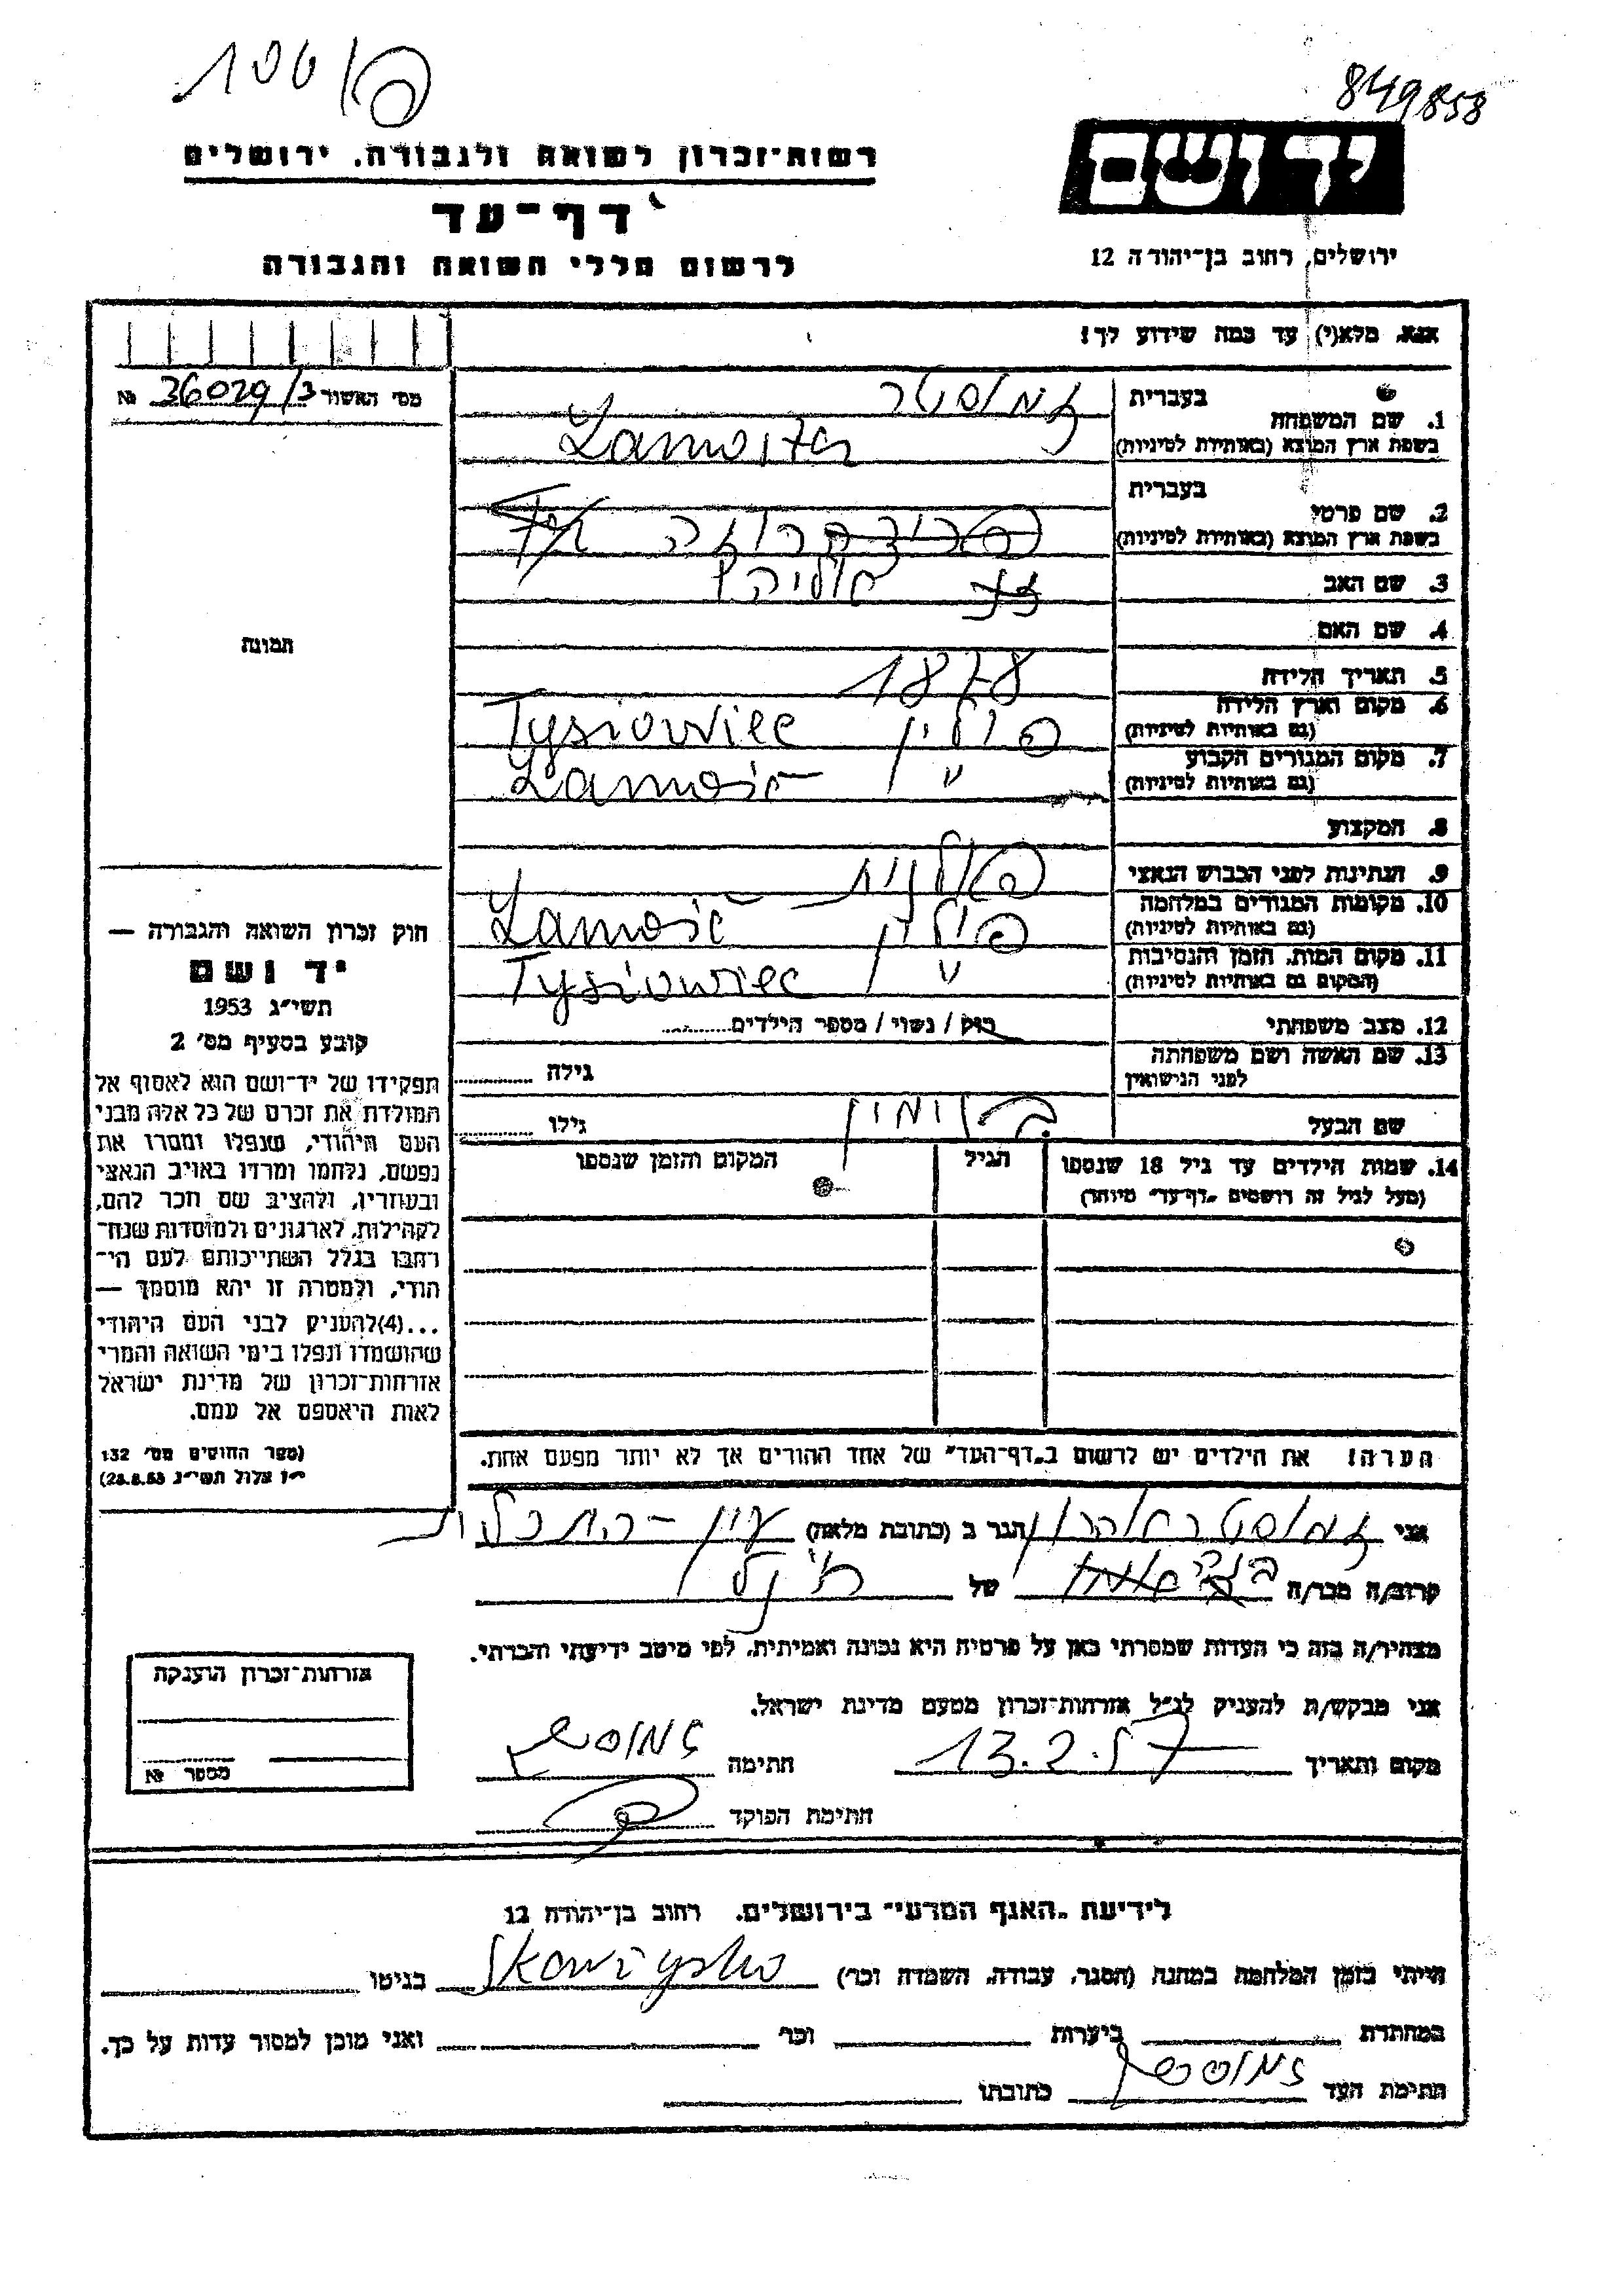 849858
יד ושם
ירושלים, רחוב בן־יהודה 12
רשות־זכרון לשואה ולגבורה. ירושלים
דף־עד
לרשום חללי השואה והגבורה
אנא, מלא(י) עד כמה שידוע לך!
מס׳ האשור 36029/3 №
תמונה
1. שם המשפחה
בעברית זמוסטר
בשפת ארץ המוצא (באותיות לטיניות)
2. שם פרטי
בעברית
בשפת ארץ המוצא (באותיות לטיניות)
3. שם האב
4. שם האם
5. תאריך הלידה 1878
6. מקום וארץ הלידה פולין Tysiowiec
(גם באותיות לטיניות)
7. מקום המגורים הקבוע " Zamość
(גם באותיות לטיניות)
8. המקצוע
9. הנתינות לפני הכבוש הנאצי פולנית
10. מקומות המגורים במלחמה פולין Zamość
(גם באותיות לטיניות)
11. מקום המות, הזמן והנסיבות " Tysiowiec
(המקום גם באותיות לטיניות)
12. מצב משפחתי רוק / נשוי / מספר הילדים
13. שם האשה ושם משפחתה גילה
לפני הנישואין
שם הבעל גילו
14. שמות הילדים עד גיל 18 שנספו הגיל המקום והזמן שנספו
(מעל לגיל זה רושמים „דף־עד״ מיוחד)
הערה! את הילדים יש לרשום ב„דף־העד״ של אחד ההורים אך לא יותר מפעם אחת.
חוק זכרון השואה והגבורה —
יד ושם
תשי״ג 1953
קובע בסעיף מס׳ 2
תפקידו של יד־ושם הוא לאסוף אל
המולדת את זכרם של כל אלה מבני
העם היהודי, שנפלו ומסרו את
נפשם, נלחמו ומרדו באויב הנאצי
ובעוזריו, ולהציב שם וזכר להם,
לקהילות, לארגונים ולמוסדות שנח־
רבו בגלל השתייכותם לעם הי־
הודי, ולמטרה זו יהא מוסמך —
...(4)להעניק לבני העם היהודי
שהושמדו ונפלו בימי השואה והמרי
אזרחות־זכרון של מדינת ישראל
לאות היאספם אל עמם.
(ספר החוקים מס׳ 132
י״ז אלול תשי״ג 28.8.53)
אני זמוסטר אהרון הגר ב (כתובת מלאה) עין-התכלת
קרוב/ה מכר/ה של
מצהיר/ה בזה כי העדות שמסרתי כאן על פרטיה היא נכונה ואמיתית, לפי מיטב ידיעתי והכרתי.
אני מבקש/ת להעניק לנ״ל אזרחות־זכרון מטעם מדינת ישראל.
מקום ותאריך 13.2.57 חתימה
חתימת הפוקד
אזרחות־זכרון הוענקה
מספר №
לידיעת „האגף המדעי״ בירושלים, רחוב בן־יהודה 12
הייתי בזמן המלחמה במחנה (הסגר, עבודה, השמדה וכר׳) בגיטו
במחתרת ביערות וכר׳ ואני מוכן למסור עדות על כך.
חתימת העד כתובתו